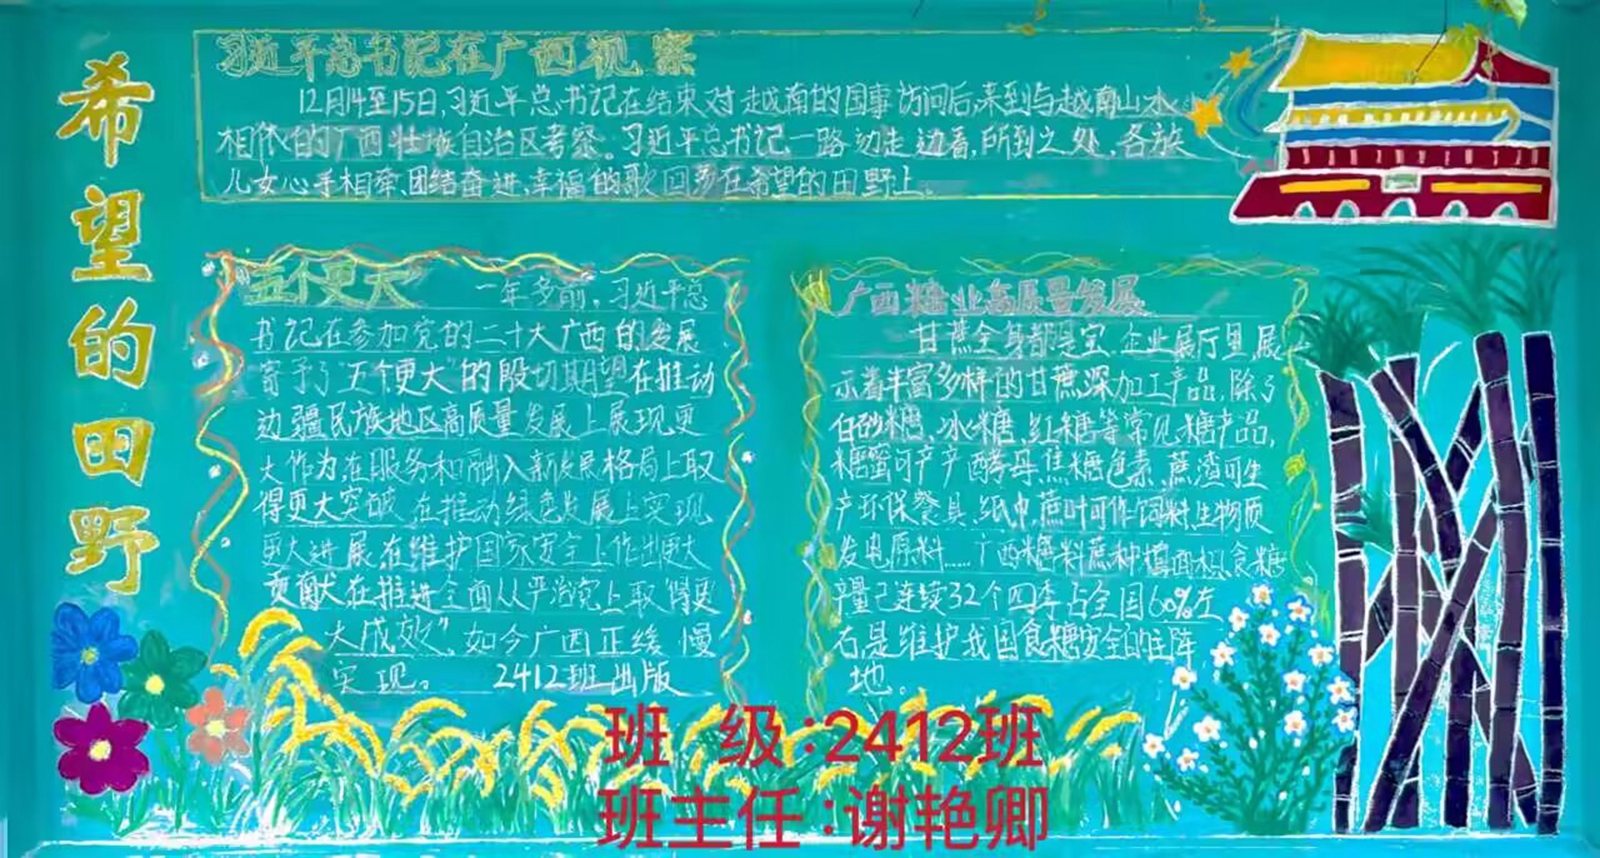 希望的田野
习近平总书记在广西视察
12月14至15日,习近平总书记在结束对越南的国事访问后,来到与越南山水
相依的广西壮族自治区考察。习近平总书记一路边走边看,所到之处,各族
儿女心手相牵、团结奋进,幸福的歌回荡在希望的田野上。
五个更大
一年多前,习近平总
书记在参加党的二十大广西的发展
寄予了"五个更大"的殷切期望在推动
边疆民族地区高质量发展上展现更
大作为,在服务和融入新发展格局上取
得更大突破,在推动绿色发展上实现
更大进展,在维护国家安全上作出更大
贡献在推进全面从严治党上取得更
大成效",如今广西正缓慢
实现。 2412班出版
广西糖业高质量发展
甘蔗全身都是宝,企业展厅里,展
示着丰富多样的甘蔗深加工产品,除了
白砂糖、冰糖、红糖等常见糖产品,
糖蜜可产产酵母、焦糖色素,蔗渣可生
产环保餐具、纸巾,蔗叶可作饲料、生物质
发电原料......广西糖料蔗种植面积、食糖
产量已连续32个四季占全国60%左
右,是维护我国食糖安全的主阵
地。
班 级:2412班
班主任:谢艳卿